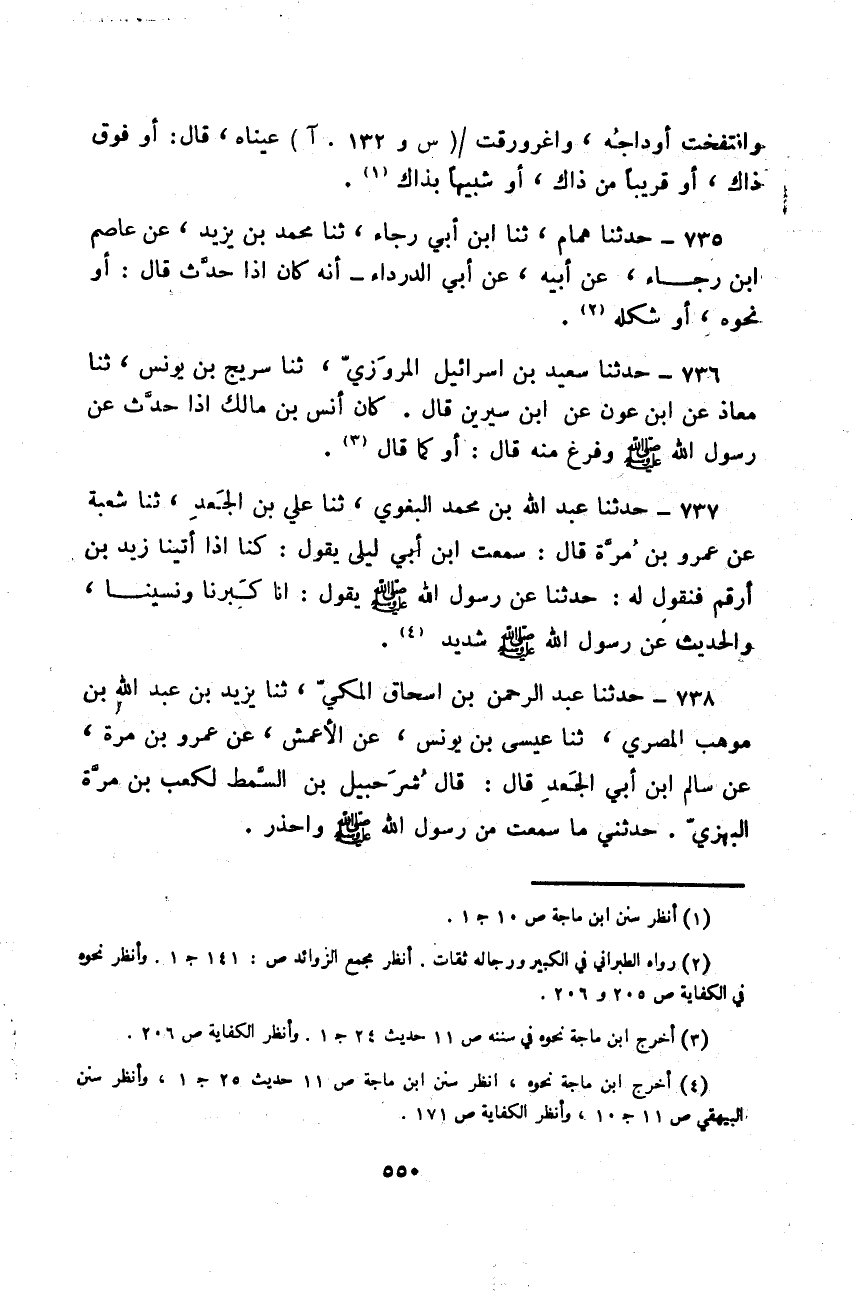 وانتفخت أوداجُه ، واغرورقت /( س و ١٣٢ . آ ) عيناه ، قال: أو فوق
ذاك ، أو قريباً من ذاك ، أو شبيهاً بذاك (١) .
٧٣٥ ـ حدثنا همام ، ثنا ابن أبي رجاء ، ثنا محمد بن يزيد ، عن عاصم
ابن رجـــاء ، عن أبيه ، عن أبي الدرداء ـ أنه كان اذا حدَّث قال : أو
نحوه ، أو شكله (٢) .
٧٣٦ ـ حدثنا سعيد بن اسرائيل المروَزيّ ، ثنا سريج بن يونس ، ثنا
معاذ عن ابن عون عن ابن سيرين قال . كان أنس بن مالك اذا حدَّث عن
رسول الله ﷺ وفرغ منه قال : أو كما قال (٣) .
٧٣٧ ـ حدثنا عبد الله بن محمد البغوي ، ثنا علي بن الجَعدِ ، ثنا شعبة
عن عمرو بن مُرَّة قال : سمعت ابن أبي ليلى يقول : كنا اذا أتينا زيد بن
أرقم فنقول له : حدثنا عن رسول الله ﷺ يقول : انا كَبِرنا ونسينـــا ،
والحديث عن رسول الله ﷺ شديد (٤) .
٧٣٨ ـ حدثنا عبد الرحمن بن اسحاق المكيّ ، ثنا يزيد بن عبد الله بن
موهب المصري ، ثنا عيسى بن يونس ، عن الأعمش ، عن عمرو بن مرة ،
عن سالم ابن أبي الجَعدِ قال : قال شُرَحبيل بن السَّمط لكعب بن مرَّة
البهزيّ . حدثني ما سمعت من رسول الله ﷺ واحذر .
(١) أنظر سنن ابن ماجة ص ١٠ ج ١ .
(٢) رواه الطبراني في الكبير ورجاله ثقات . أنظر مجمع الزوائد ص : ١٤١ ج ١ . وأنظر نحوه
في الكفاية ص ٢٠٥ و ٢٠٦ .
(٣) أخرج ابن ماجة نحوه في سننه ص ١١ حديث ٢٤ ج ١ . وأنظر الكفاية ص ٢٠٦ .
(٤) أخرج ابن ماجة نحوه ، انظر سنن ابن ماجة ص ١١ حديث ٢٥ ج ١ ، وأنظر سنن
البيهقي ص ١١ ج ١٠ ، وأنظر الكفاية ص ١٧١ .
٥٥٠